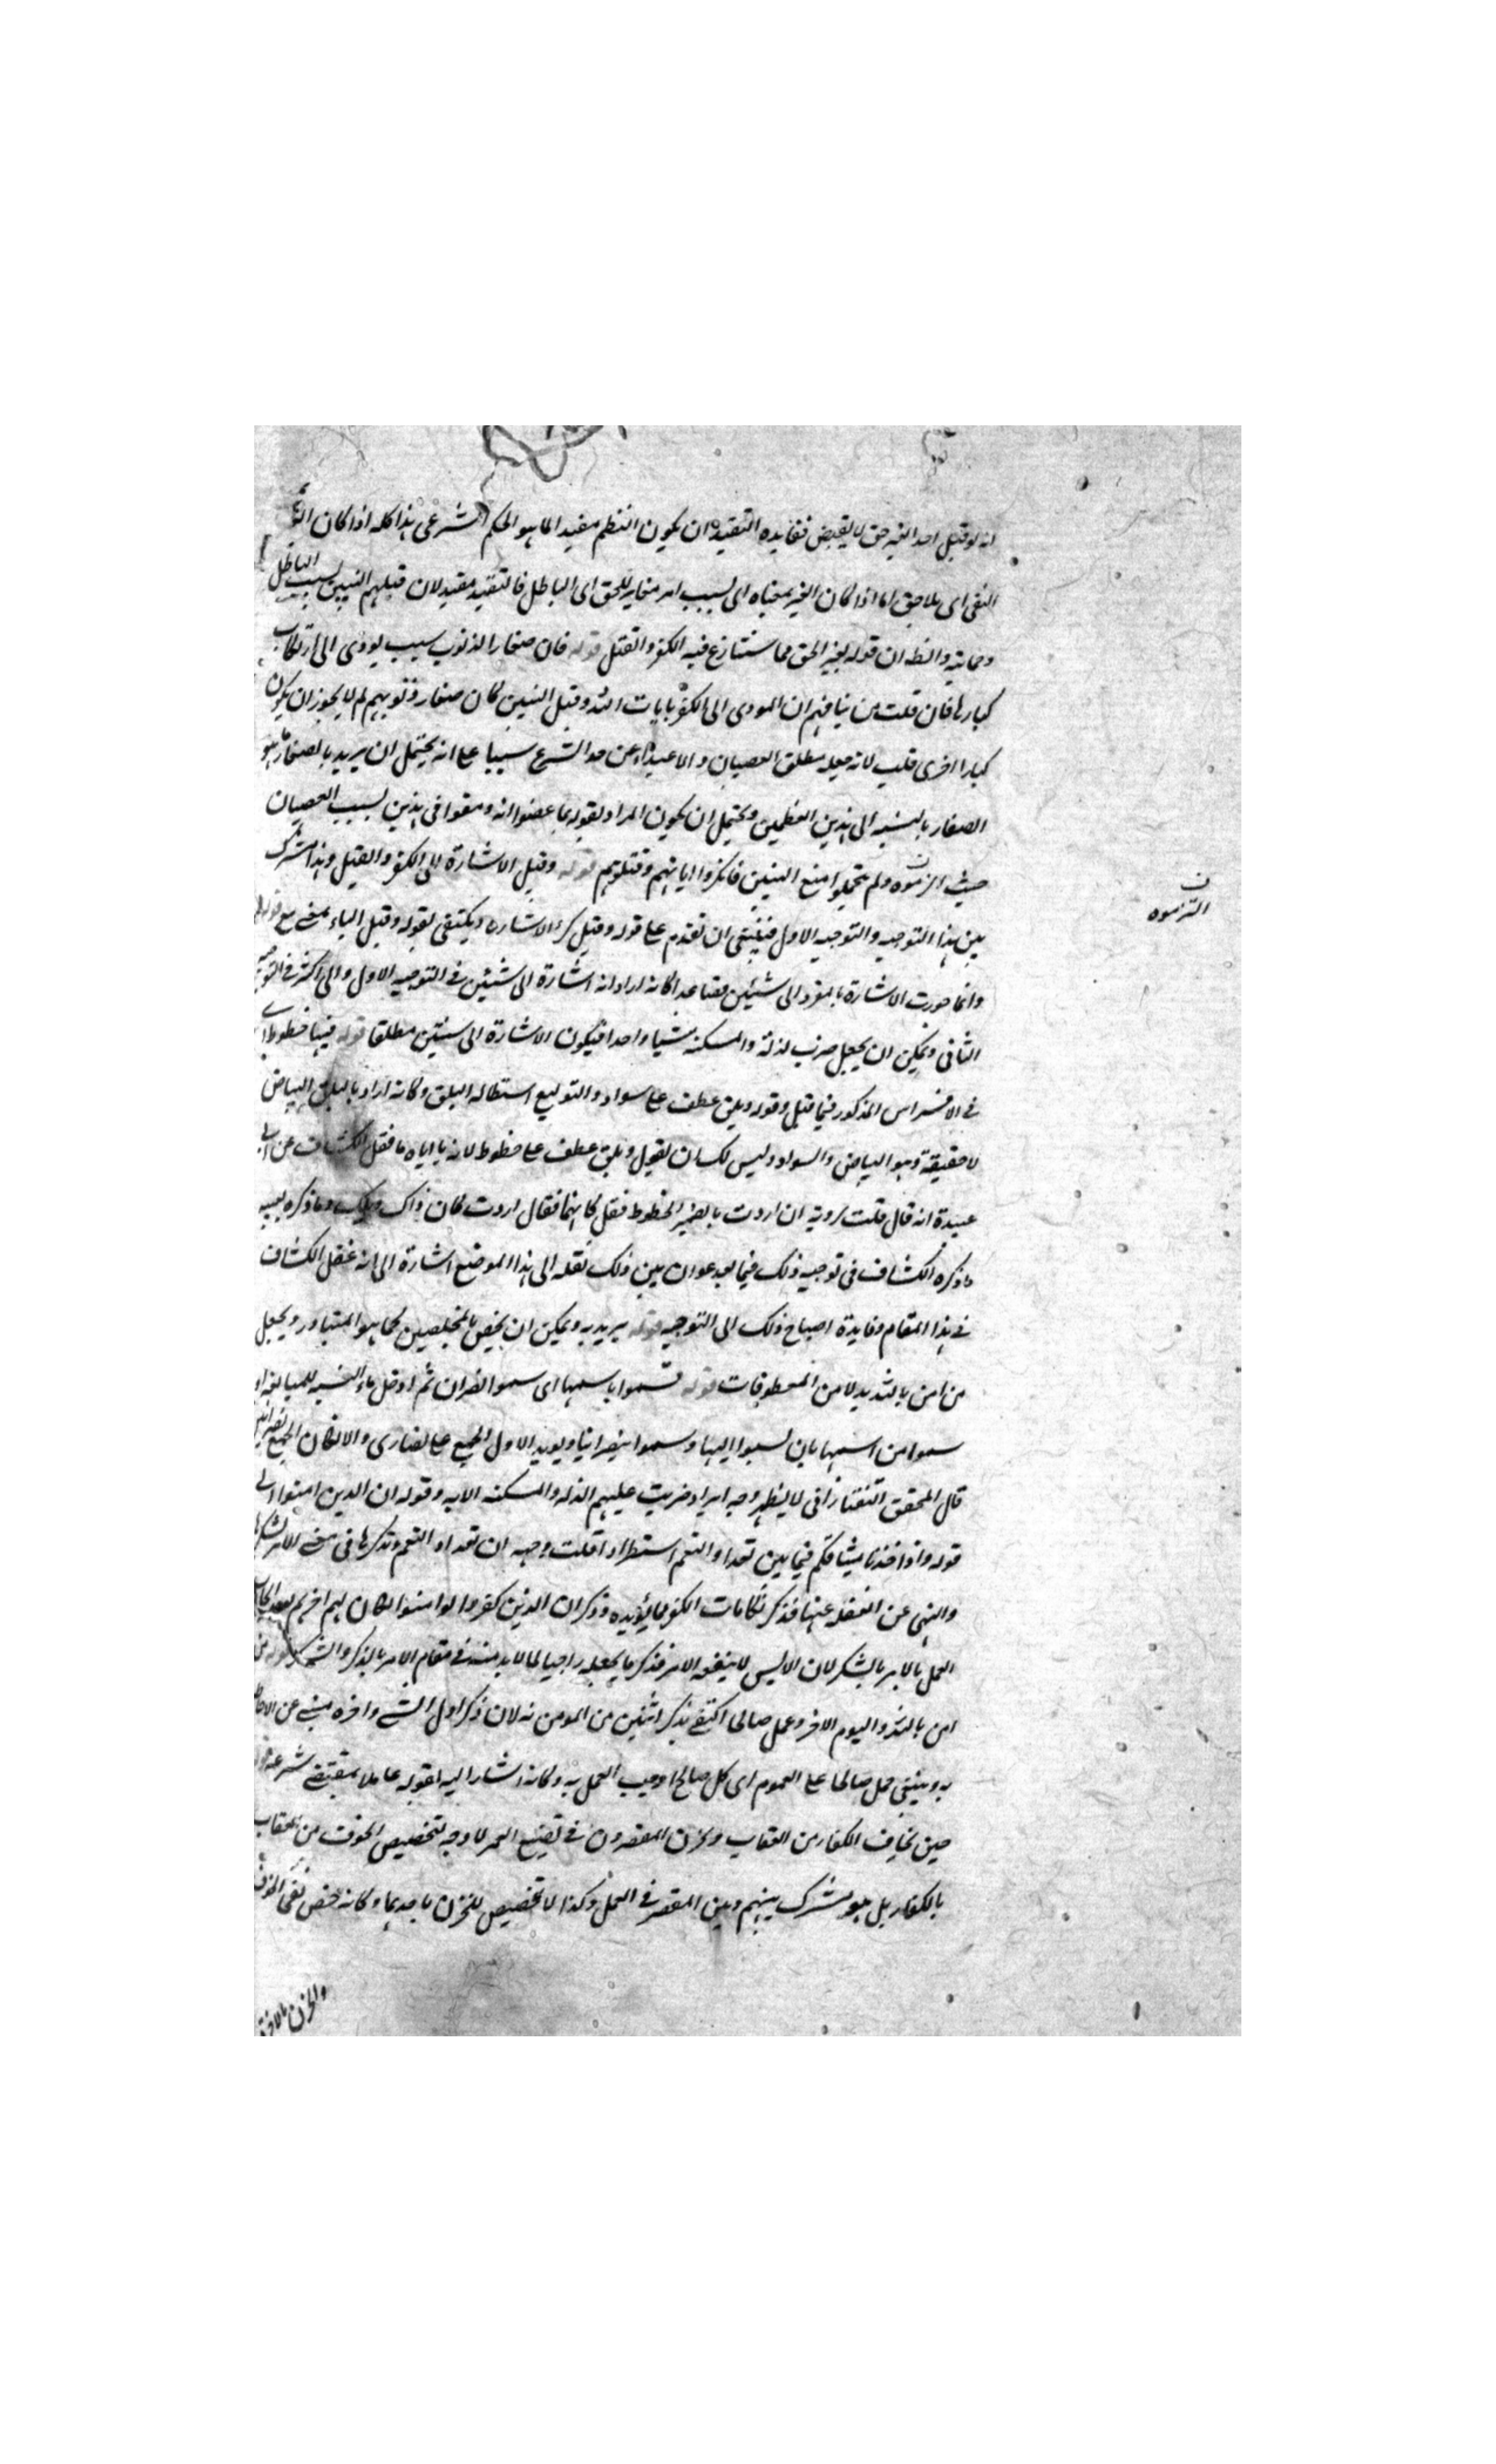 انه لو قتل احد الغير حق لا يقبض ففايده التقييد ان يكون النظم مفيدا لما هو الحكم الشرعى هذا كله اذا كان
النفى اى بلا حق اما اذا كان الغير بمعناه اى بسبب امر مغاير للحق اى الباطل فالتقييد مقيد لان قتلهم النبيين بسبب الباطل
وحمايته والظ ان قوله بغير الحق مما يتنازع فيه الكفر والقتل قوله فان صغار الذنوب سبب يودى الى ارتكاب
كبارها فان قلت من اين فهم ان المودى الى الكفر بايات الله وقتل النبيين كان صغار ذنوبهم لم لا يجوز ان يكون
كبارا اخرى قلت لانه جعله مطلق العصيان والاعتداء عن حد الشرع سببا على انه يحتمل ان يريد بالصغار ما هو
الصغار بالنسبه الى هذين العظيمين ويحتمل ان يكون المراد بقوله بما عصوا انه وقعوا فى هذين بسبب العصيان
حيث التزموه ولم يتحملوا منع النبيين فانكروا اياتهم وقتلوهم قوله وقيل الاشارة الى الكفر والقتل وهذا مشترك
التزموه
بين هذا التوجيه والتوجيه الاول فينبغى ان تقدم على قوله وقيل كرر الاشارة ويكتفى بقوله وقيل الباء بمعنى مع قوله
وانما جوزت الاشارة بالمفرد الى شيئين فصاعدا كانه اراد انه اشارة الى شيئين فى التوجيه الاول والى اكثر فى التوجيه
الثانى ويمكن ان يجعل ضرب الذلة والمسكنه شيئا واحدا فيكون الاشارة الى شيئين مطلقا قوله فيها خطوط اى
فى الافراس المذكور فيما قبل وقوله وبلق عطف على سواد والتوليع استطاله البلق وكانه اراد بالبلق البياض
لا حقيقته وهو البياض والسواد وليس لك ان تقول وبلق عطف على خطوط لانه ياباه ما نقل الكشاف عن ابى
عبيدة انه قال قلت لروبه ان اردت بالضمير الخطوط فقل كانها فقال اردت كان ذاك ويلك وما ذكره بعينه
ما ذكره الكشاف فى توجيه ذلك فيما بعد عوان بين ذلك نقله الى هذا الموضع اشارة الى انه غفل الكشاف
فى هذا المقام وفايدة احتياج ذلك الى التوجيه قوله يريد به ويمكن ان يخص بالمخلصين كما هو المتبادر ويجعل
من امن بالله بدلا من المعطوفات قوله فسموا باسمها اى سموا نصران ثم ادخل ياء النسبه للمبالغه او
سموا من اسمها بان نسبوا اليها وسموا نصرانيا ويويد الاول الجمع على نصارى والا لكان الجمع نصرانيين
قال المحقق التفتازانى لا يظهر وجه ايراد ضربت عليهم الذله والمسكنه الايه وقوله ان الذين امنوا الى
قوله واذ اخذنا ميثاقكم فيما بين تعداد النعم استطرادا قلت وجهه ان تعداد النعم وتذكرها فى معنى الامر بالشكر
والنهى عن الغفله عنها فذكر نكايات الكفر لما يؤيده وذكر ان الذين كفروا لو امنوا لكان لهم اجرهم
العمل بالامر بالشكر لان الايس لا ينفعه الامر فذكر ما يجعله راجيا لما لا بد منه فى مقام الامر بالذكر والشكر قوله من
امن بالله واليوم الاخر وعمل صالحا اكتفى بذكر اثنين من المومن به لان ذكر اول الشى واخره يبنى عن الاحاطه
به وينبغى حمل صالحا على العموم اى كل صالح اوجب العمل به وكانه اشار اليه بقوله عاملا بمقتضى شرعه قوله
حين يخاف الكفار من العقاب ويحزن المقصرون فى تضييع العمر لا وجه لتخصيص الخوف من العقاب
بالكفار بل هو مشترك بينهم وبين المقصر فى العمل وكذا لا تخصيص للحزن باحدهما وكانه خص نفى الخوف
والحزن بالاخرة